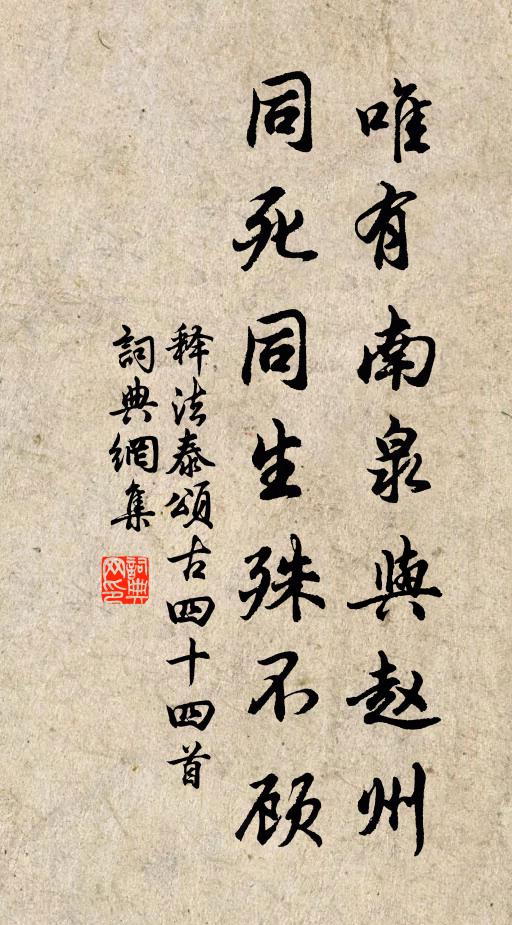 唯有南泉與赵州
同死同生殊不顾
释法泰頌古四十四首
詞典網集
詞典网印